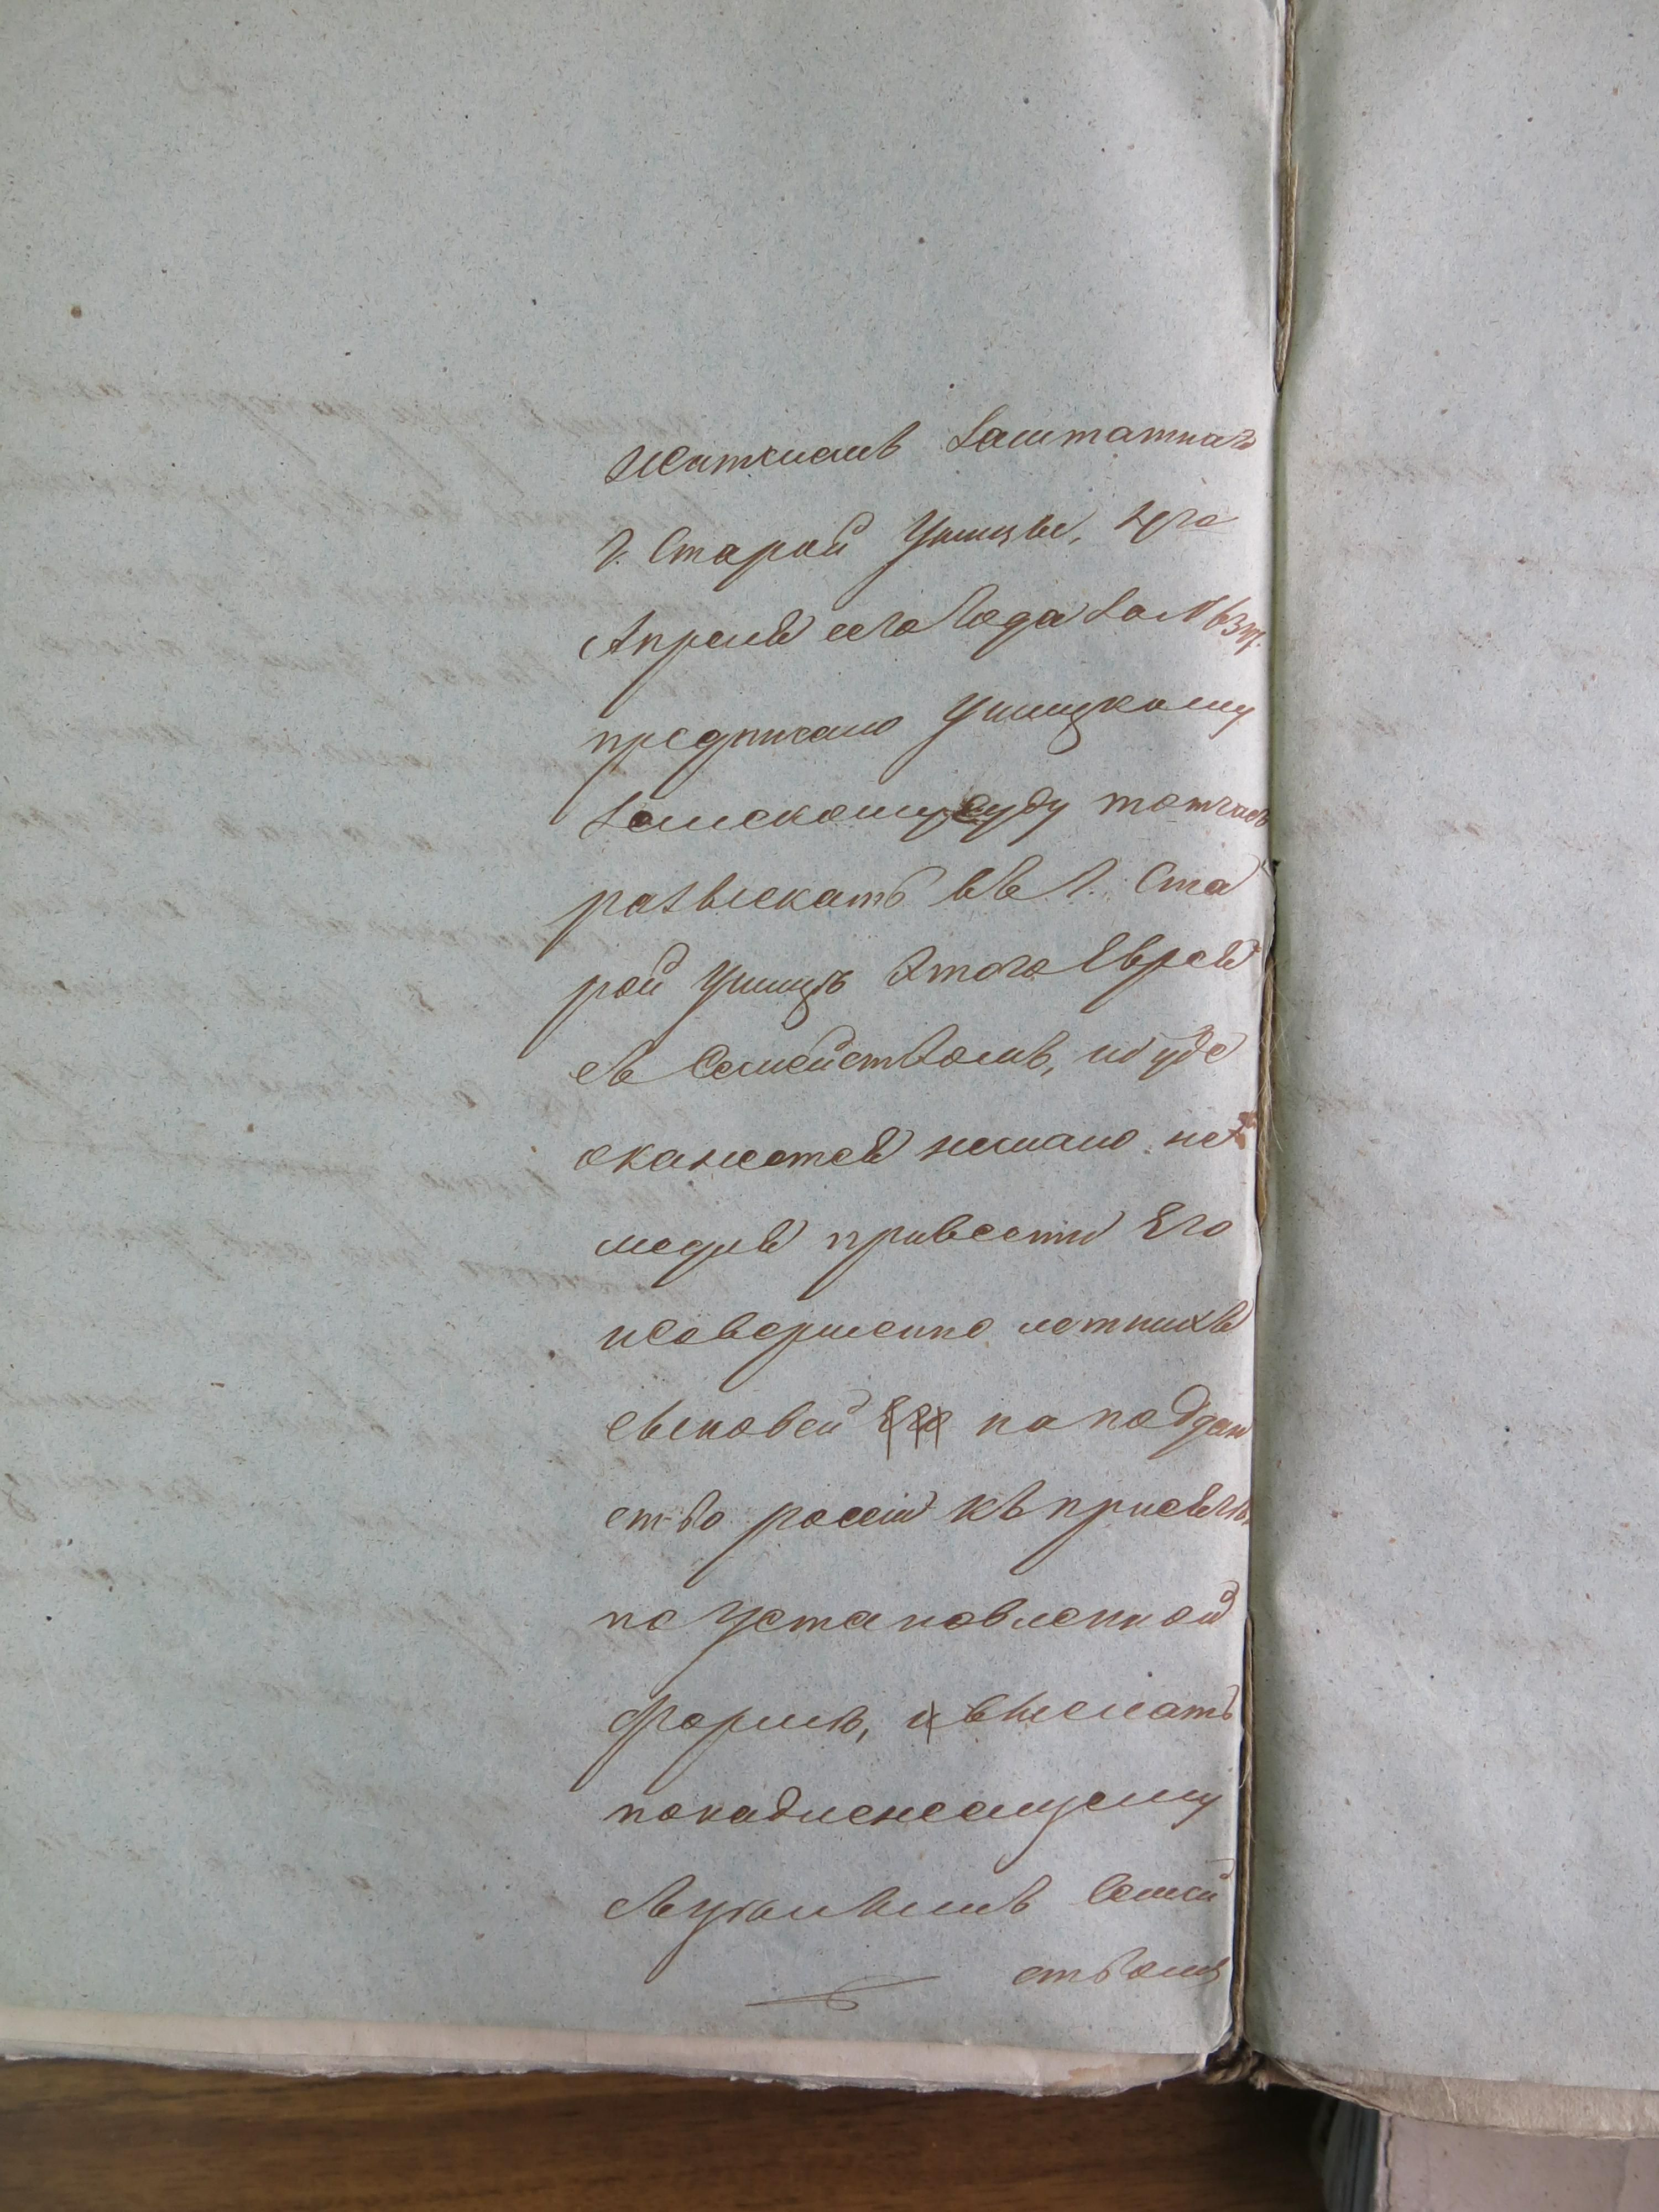 жителемъ Заштатнаго
г. Старой Ушицы, 4го
Апреля сего года за №
предписано Ушицкому
Земскому суду тотчасъ
разыскать въ г. Ста
рой Ушицѣ этого Еврея
съ Семействомъ, и буде
окажется немало не
медля привести Его
и совершенно летнихъ
сыновей на поддан
ство россіи къ присягѣ
по установленной
формѣ, внушать
понадлежащему
съ Семей
ствомъ